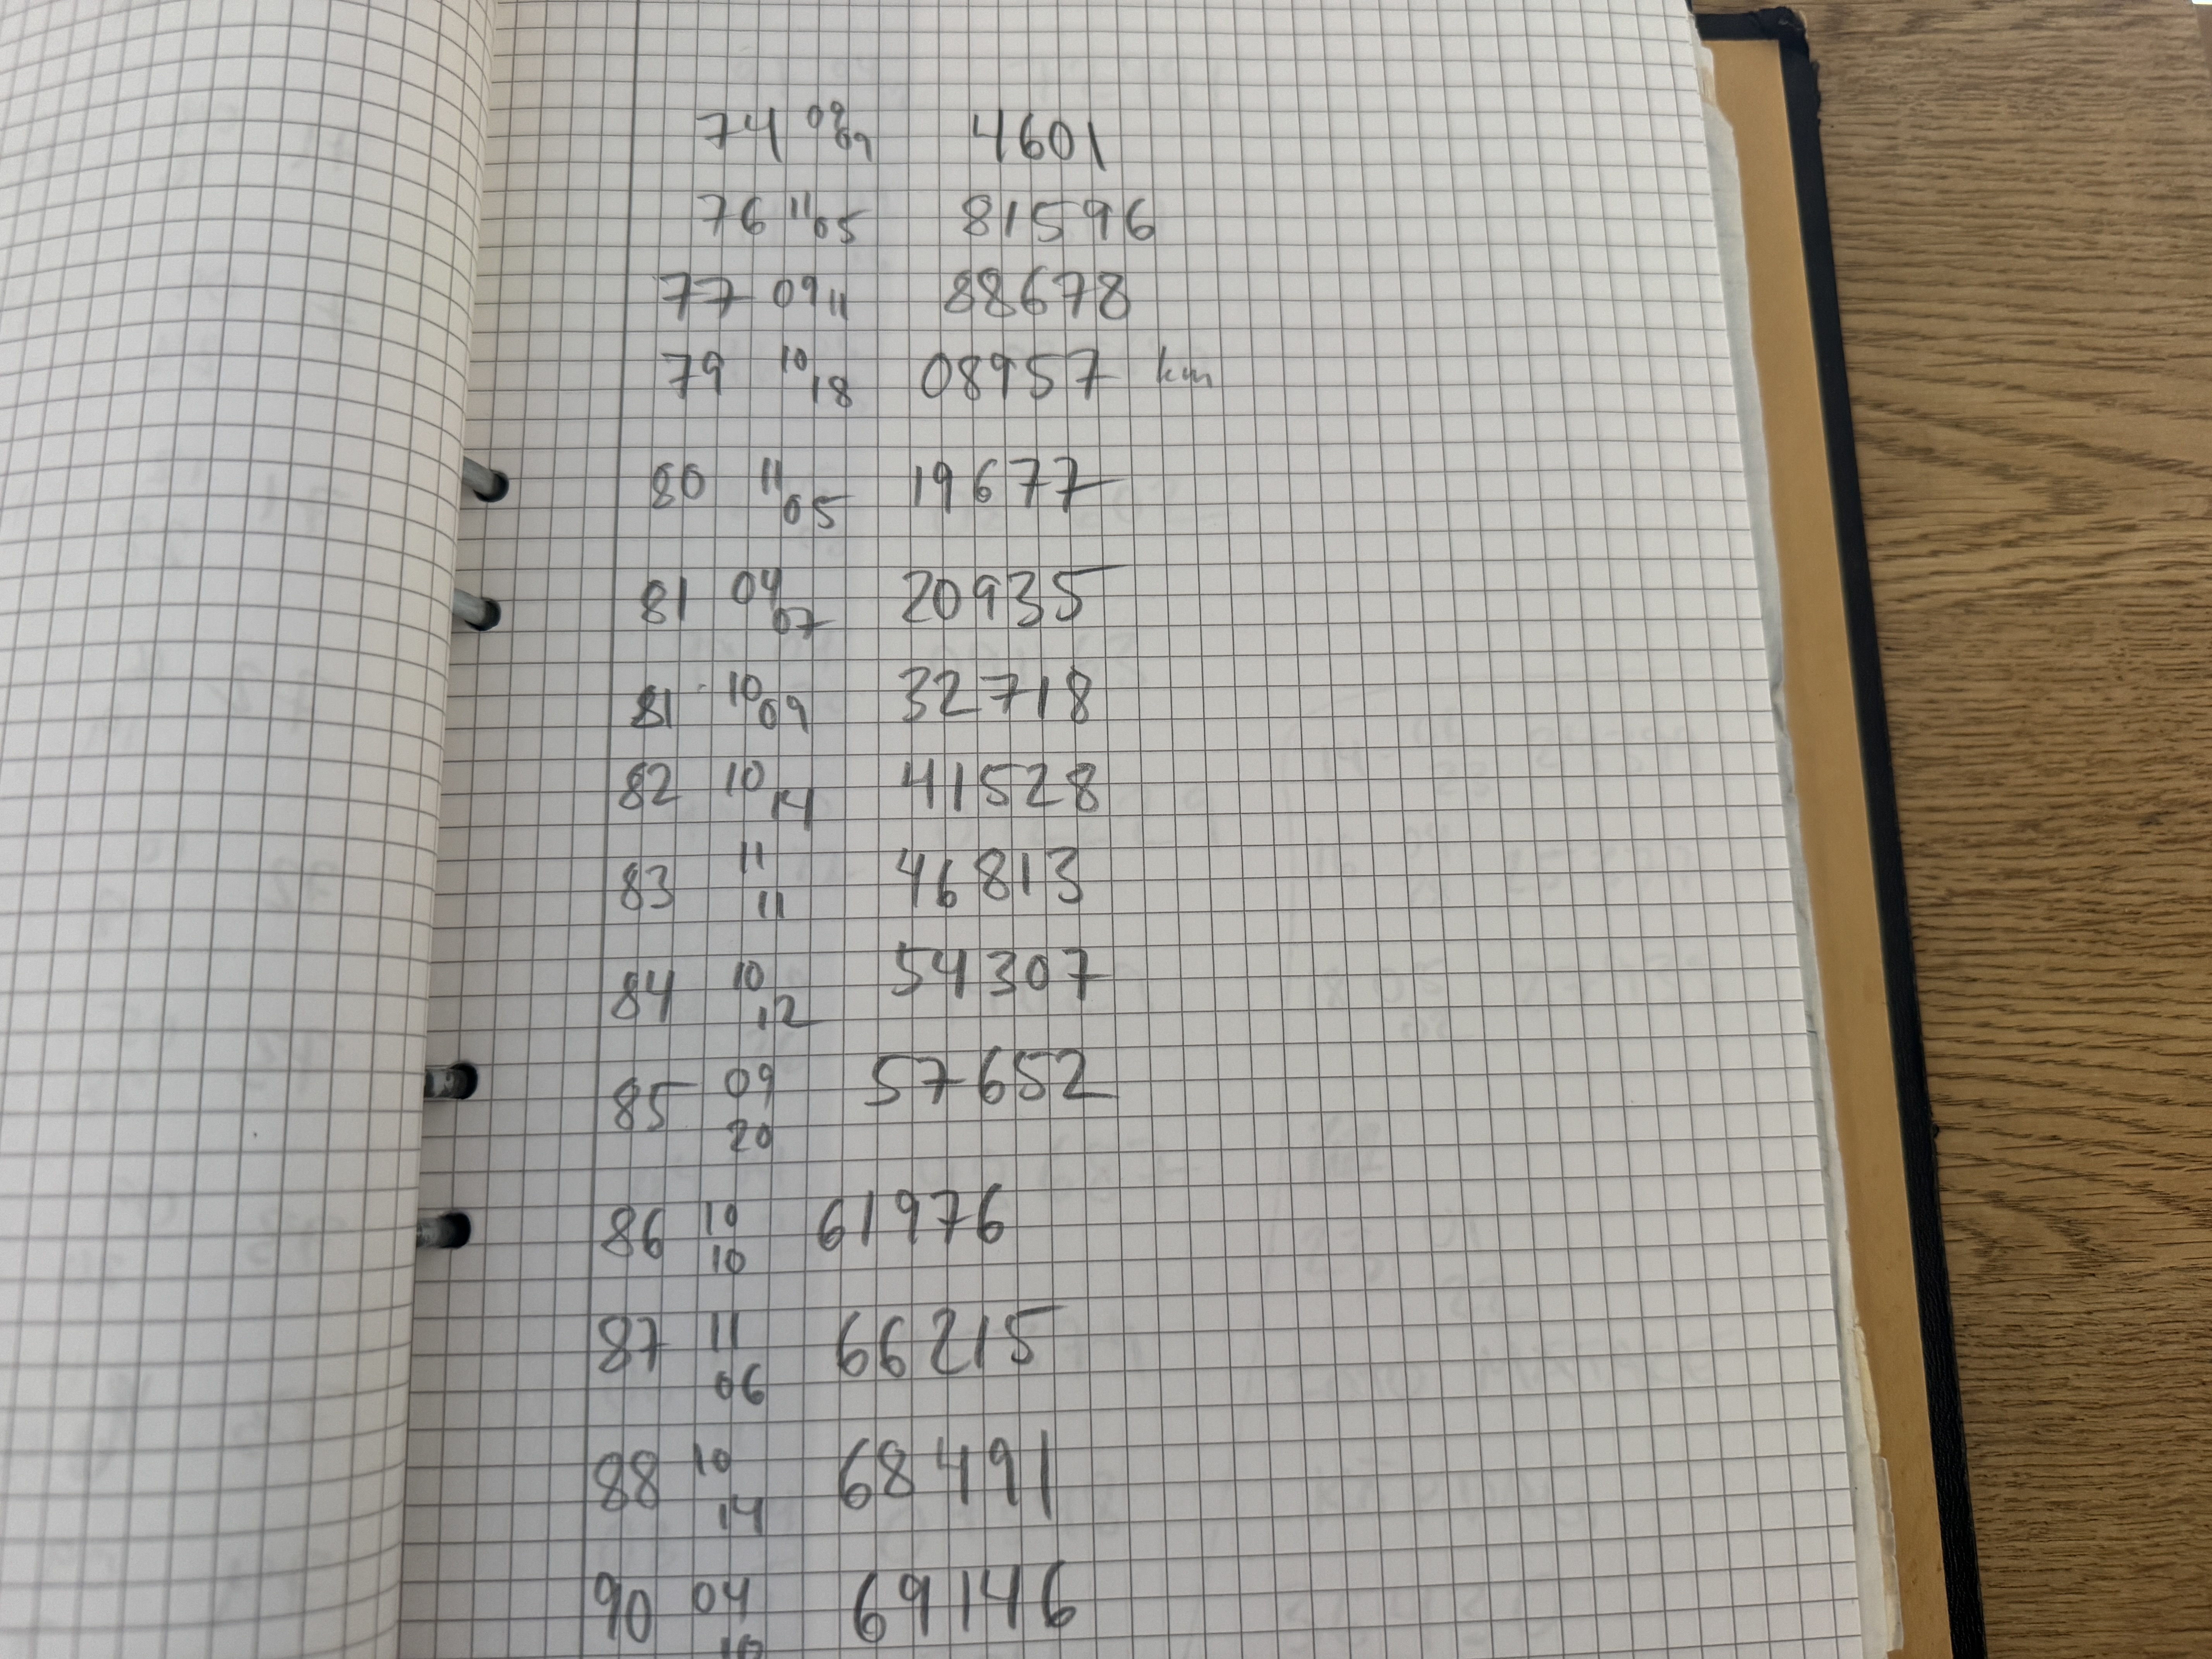 74 09 09 4601
76 11 05 81596
77 09 11 88678
79 10 18 08957 km
80 11 05 19677
81 04 07 20935
81 10 09 32718
82 10 14 41528
83 11 11 46813
84 10 12 54307
85 09 20 57652
86 10 10 61976
87 11 06 66215
88 10 14 68491
90 04 10 69146